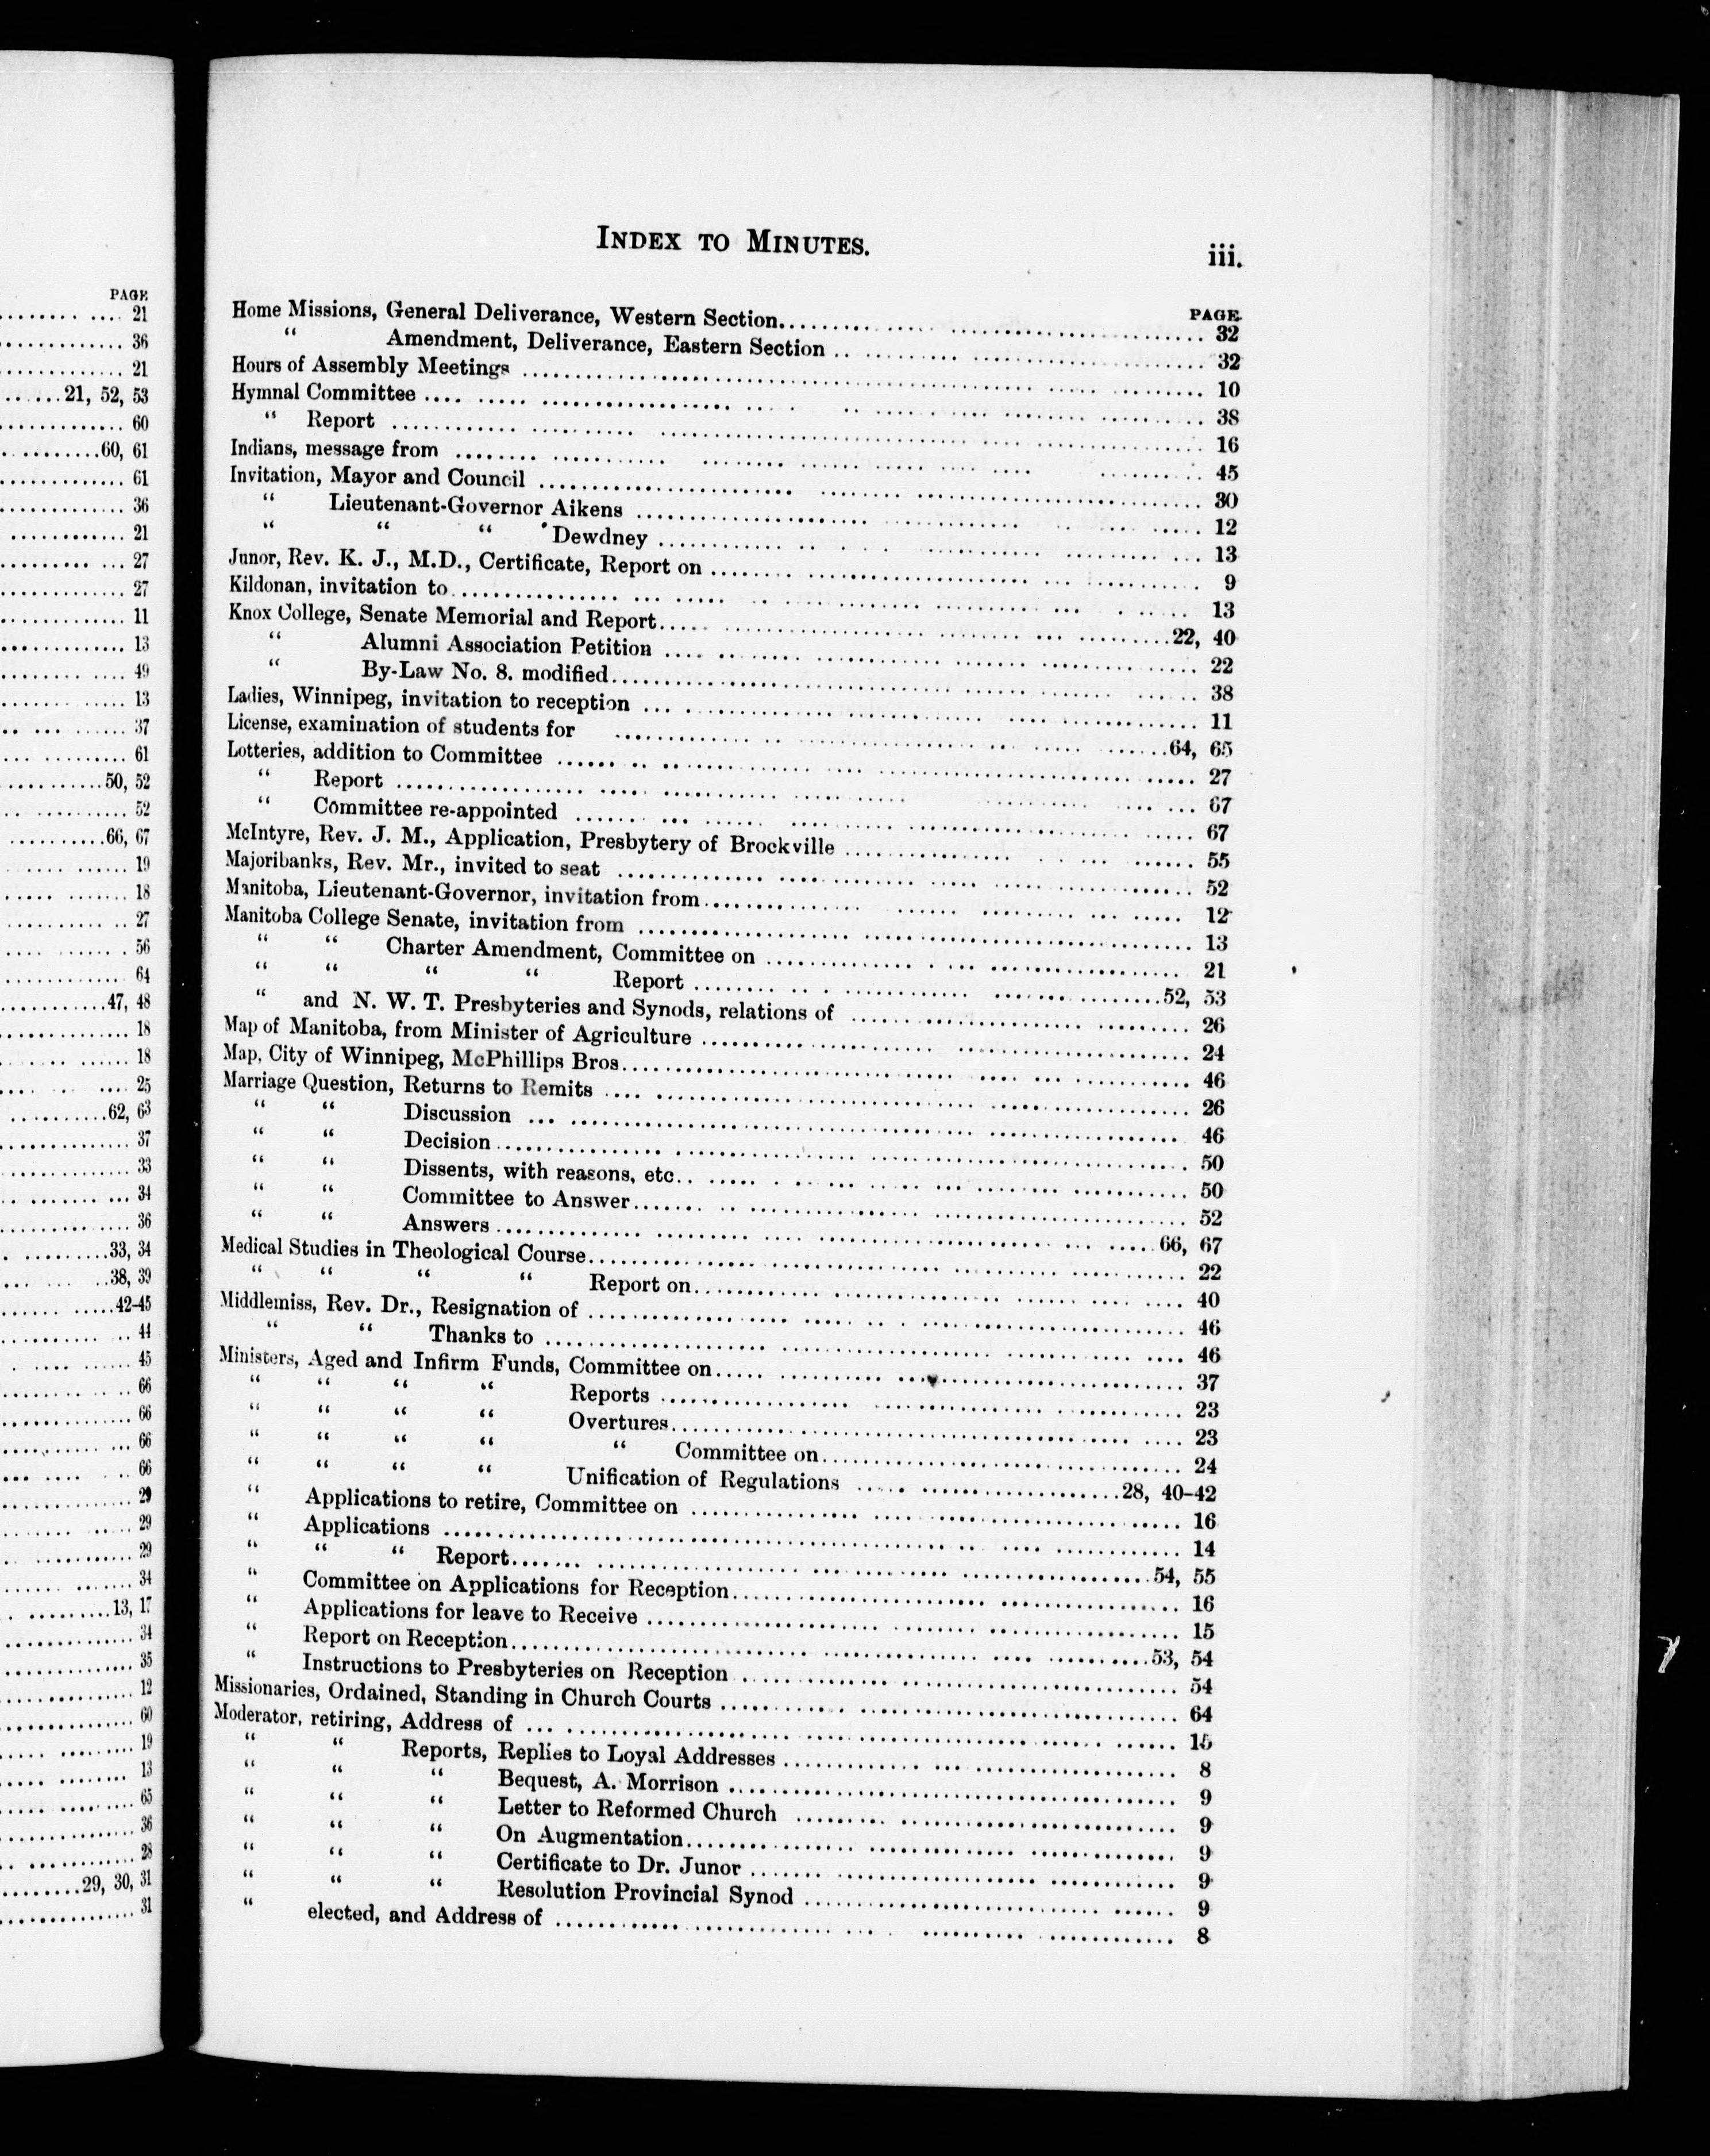 PAGE
21
36
21
21, 52, 53
60
60, 61
61
36
21
27
27
11
13
49
13
37
61
50, 52
52
66, 67
19
18
27
56
64
47, 48
18
18
25
62, 63
37
33
34
36
33, 34
38, 39
42-45
44
45
66
66
66
66
29
29
29
34
13, 17
34
35
12
60
19
13
65
36
28
29, 30, 31
31
INDEX TO MINUTES.
iii.
PAGE.
Home Missions, General Deliverance, Western Section 32
“ Amendment, Deliverance, Eastern Section 32
Hours of Assembly Meetings 10
Hymnal Committee 38
“ Report 16
Indians, message from 45
Invitation, Mayor and Council 30
“ Lieutenant-Governor Aikens 12
“ “ “ Dewdney 13
Junor, Rev. K. J., M.D., Certificate, Report on 9
Kildonan, invitation to 13
Knox College, Senate Memorial and Report 22, 40
“ Alumni Association Petition 22
“ By-Law No. 8. modified 38
Ladies, Winnipeg, invitation to reception 11
License, examination of students for 64, 65
Lotteries, addition to Committee 27
“ Report 67
“ Committee re-appointed 67
McIntyre, Rev. J. M., Application, Presbytery of Brockville 55
Majoribanks, Rev. Mr., invited to seat 52
Manitoba, Lieutenant-Governor, invitation from 12
Manitoba College Senate, invitation from 13
“ “ Charter Amendment, Committee on 21
“ “ “ “ Report 52, 53
“ and N. W. T. Presbyteries and Synods, relations of 26
Map of Manitoba, from Minister of Agriculture 24
Map, City of Winnipeg, McPhillips Bros. 46
Marriage Question, Returns to Remits 26
“ “ Discussion 46
“ “ Decision 50
“ “ Dissents, with reasons, etc. 50
“ “ Committee to Answer 52
“ “ Answers 66, 67
Medical Studies in Theological Course 22
“ “ “ “ Report on 40
Middlemiss, Rev. Dr., Resignation of 46
“ “ Thanks to 46
Ministers, Aged and Infirm Funds, Committee on 37
“ “ “ “ Reports 23
“ “ “ “ Overtures 23
“ “ “ “ “ Committee on 24
“ “ “ “ Unification of Regulations 28, 40-42
“ Applications to retire, Committee on 16
“ Applications 14
“ “ “ Report 54, 55
“ Committee on Applications for Reception 16
“ Applications for leave to Receive 15
“ Report on Reception 53, 54
“ Instructions to Presbyteries on Reception 54
Missionaries, Ordained, Standing in Church Courts 64
Moderator, retiring, Address of 15
“ “ Reports, Replies to Loyal Addresses 8
“ “ “ Bequest, A. Morrison 9
“ “ “ Letter to Reformed Church 9
“ “ “ On Augmentation 9
“ “ “ Certificate to Dr. Junor 9
“ “ “ Resolution Provincial Synod 9
“ elected, and Address of 8